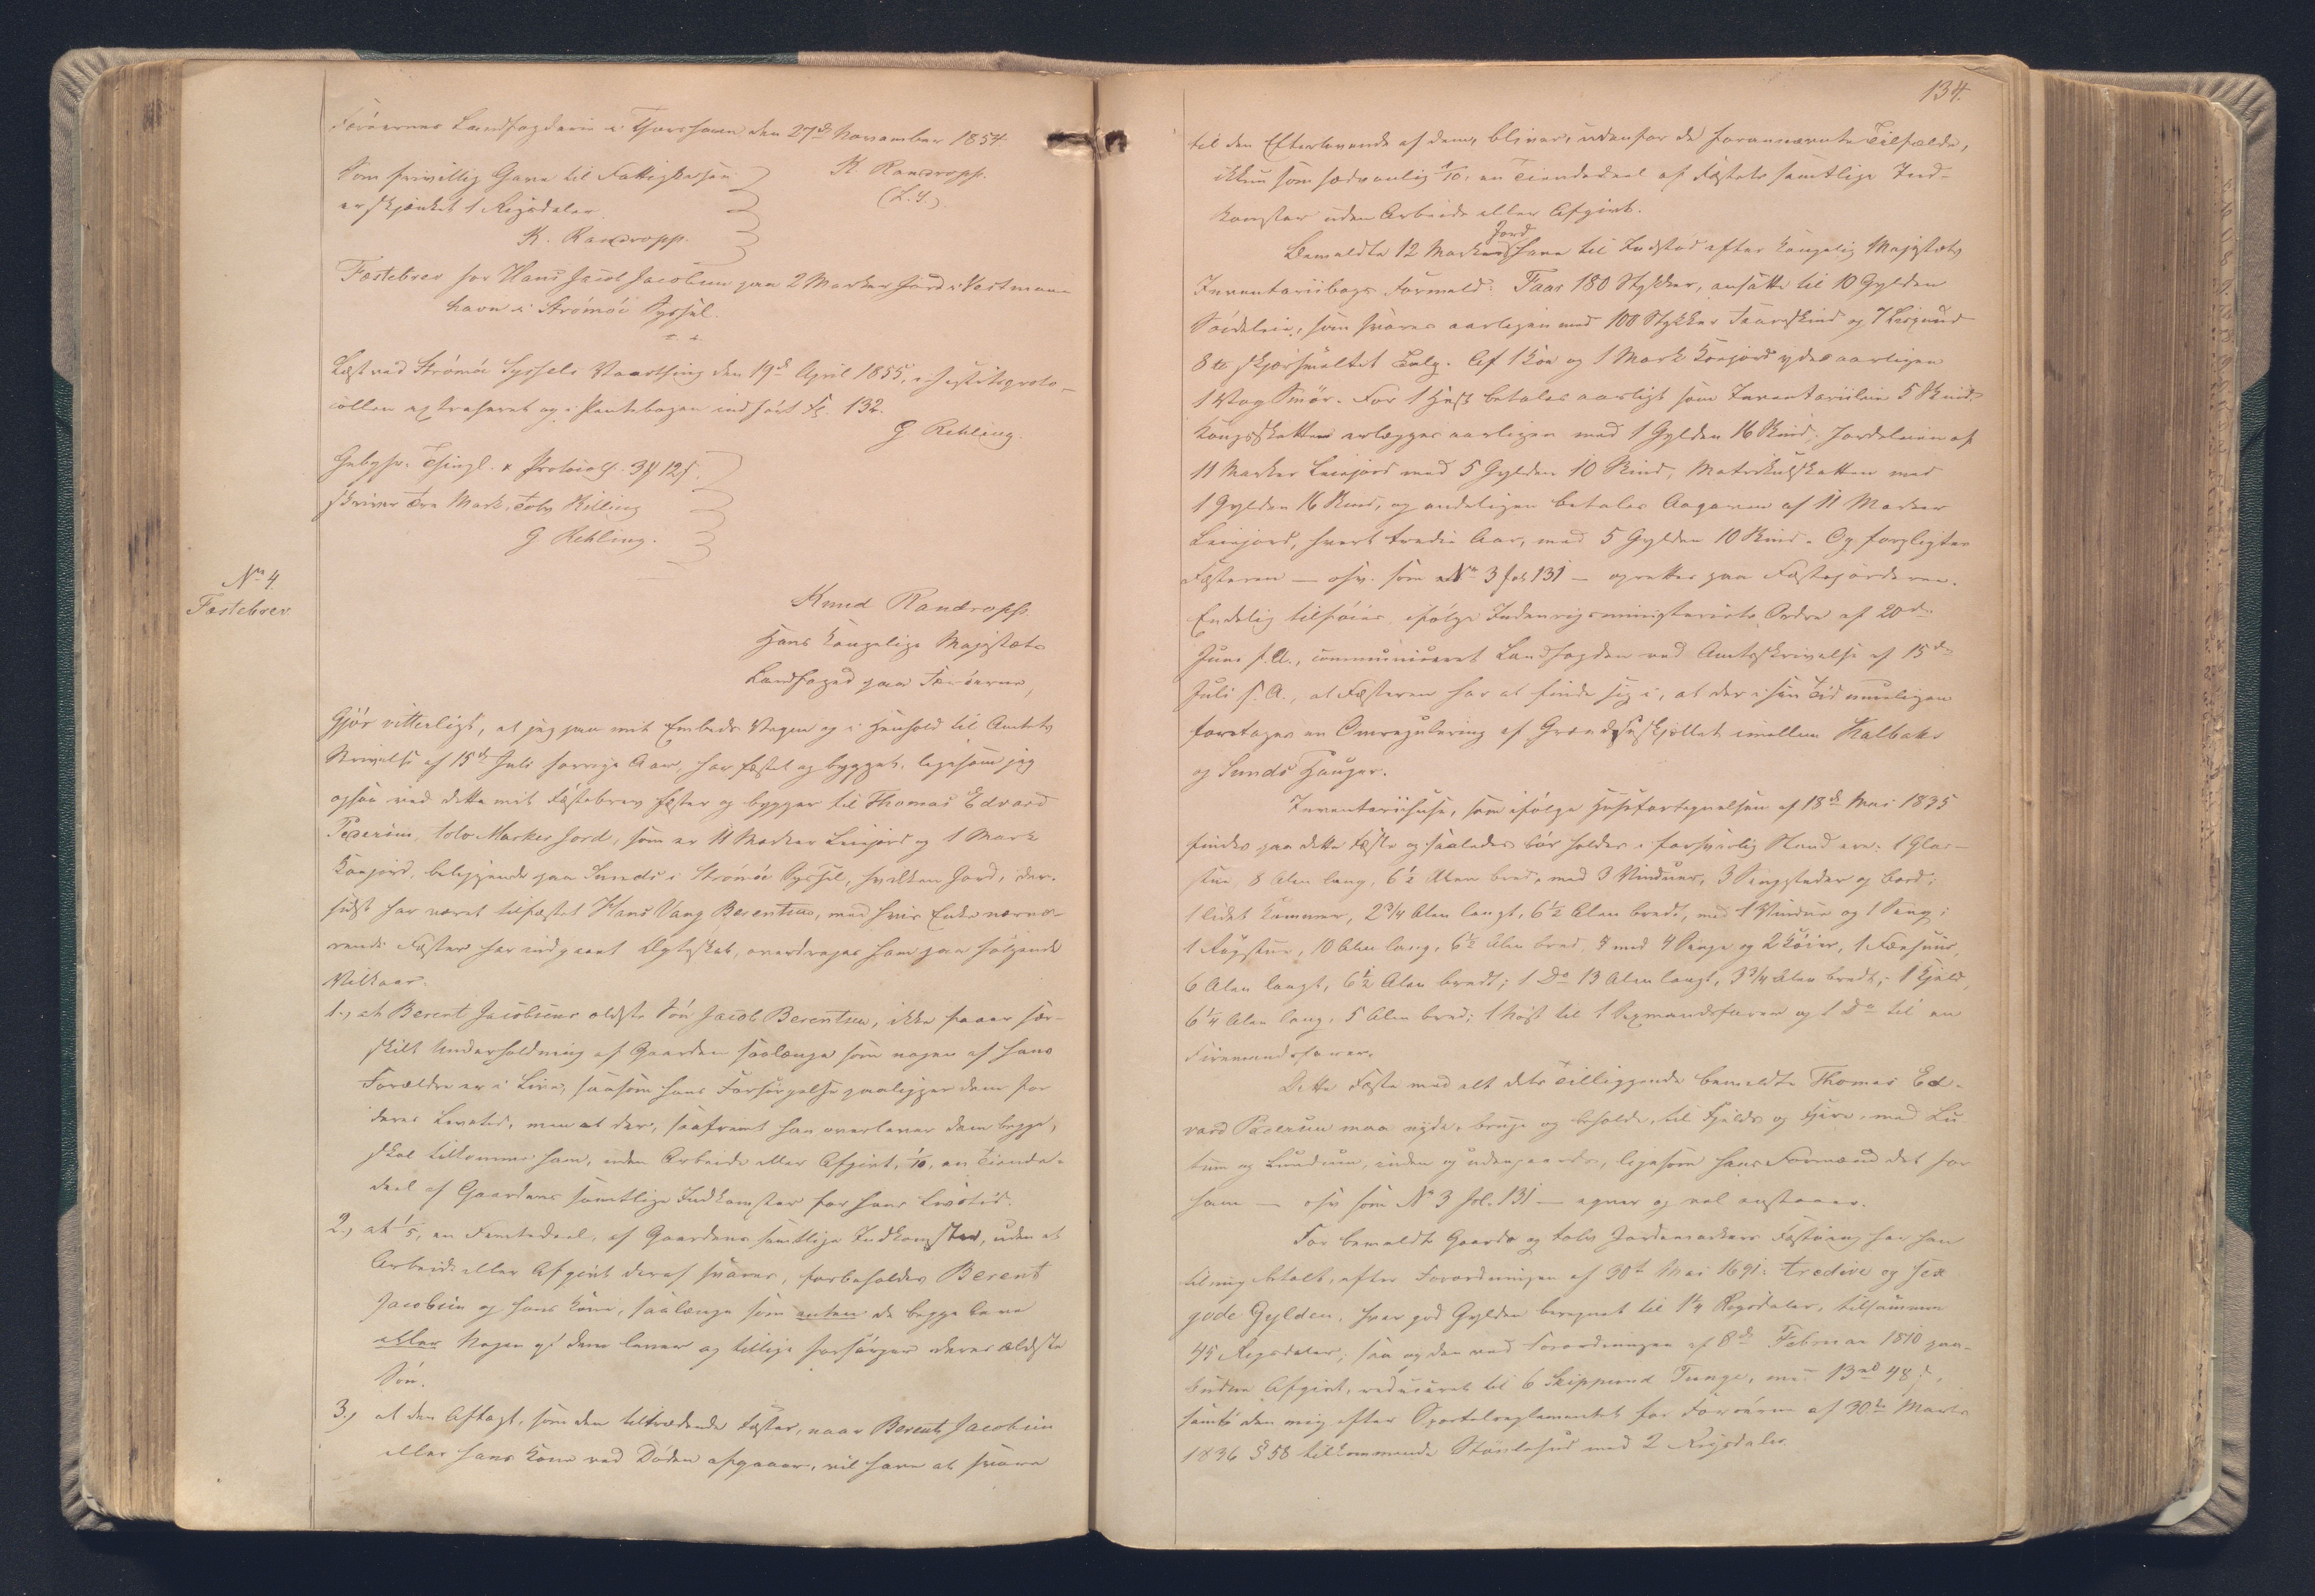 Færöernes Landfogderie i Thorshavn den 27d November 1854.
K. Randropp.
(L.S.)
Som frivillig Gave til Fattigkassen
er skjænket 1 Rigsdaler.
K. Randropp.
Fæstebrev for Hans Jacob Jacobsen paa 2 Marker Jord i Vestmann-
havn i Strömöe Syssel.
Læst ved Strömöe Syssels Vaarthing den 19d April 1855, i Justitsproto-
collen extraheret og i Pantebogen indfört Fol. 132.
G Rehling.
Gebyhr: Thingl. & Protocoll. 3 # 12 s.
skriver Tre Mark, Tolv Skilling
G Rehling.
No 4.
Fæstebrev
Knud Randropp.
Hans Kongelige Majestæts
Landfoged paa Færöerne,
Gjör vitterligt, at jeg paa mit Embeds Vegne og i Henhold til Amtets
Skrivelse af 15d Juli forrige Aar, har fæstet og bygget, ligesom jeg
ogsaa ved dette mit Fæstebrev fæster og bygger til Thomas Edvard
Pedersen, tolv Marker Jord, som er 11 Marker Leiejord og 1 Mark
Konejord, beliggende paa Sunds i Strömöe Syssel, hvilken Jord, der
sidst har været tilfæstet Hans Vang Berentsen, med hvis Enke nærvæ-
rende Fæster har indgaaet Ægteskab, overdrages ham paa fölgende
Vilkaar:
1., at Berent Jacobsens ældste Sön Jacob Berentsen, ikke faaer sær-
skilt Underholdning af Gaarden saalænge som nogen af hans
Forældre er i Live, saasom hans Forsörgelse paaligger dem for
deres Levetid, men at der, saafremt han overlever dem begge,
skal tilkomme ham, uden Arbeide eller Afgivt, 1/10, en Tiende-
deel af Gaardens samtlige Indkomster for hans Livstid.
2., at 1/5, en Femtedeel, af Gaardens samtlige Indkomster, uden at
Arbeide eller Afgivt deraf svares, forbeholdes Berent
Jacobsen og hans Kone, saalænge som enten de begge leve
eller Nogen af dem lever og tillige forsörger deres ældste
Sön.
3., at den Aftægt, som den tiltrædende Fæster, naar Berent Jacobsen
eller hans Kone ved Döden afgaaer, vil have at svare
134.
til den Efterlevende af dem, bliver, udenfor de forannævnte Tilfælde,
ikkun som sædvanlig 1/10, en Tiendedeel af Fæstets samtlige Ind-
komster uden Arbeide eller Afgivt.
Bemeldte 12 Marker Jord have til Indstöd efter Kongelig Majestæts
Inventariibogs Formeld: Faar 180 Stykker, ansatte til 10 Gylden
Söideleie, som svares aarligen med 100 Stykker Faareskind og 7 Lispund
8 lb skjærsmeltet Talg. Af 1 Koe og 1 Mark Konejord ydes aarligen
1 Vog Smör. For 1 Hest betales aarligt som Inventariileie 5 Skind.
Kongsskatten erlægges aarligen med 1 Gylden 16 Skind; Jordeleien af
11 Marker Leiejord med 5 Gylden 10 Skind, Matrikulskatten med
1 Gylden 16 Skind, og endeligen betales Aagaven af 11 Marker
Leiejord, hvert tredie Aar, med 5 Gylden 10 Skind. Og forpligter
Fæsteren — osv. som No 3 fol. 131 — oprettes paa Fæstejorderne.
Endelig tilföies, ifölge Indenrigsministeriets Ordre af 20d
Juni f. A., communiceret Landfogden ved Amtsskrivelse af 15d
Juli s. A., at Fæsteren har at finde sig i, at der i sin Tid muligen
foretages en Omregulering af Grændseskjellet imellem Kalbaks
og Sunds Hauger.
Inventariihuse, som ifölge Huusfortegnelsen af 18d Mai 1835
findes paa dette Fæste og saaledes bör holdes i forsvarlig Stand ere: 1 Glas-
stue, 8 Alen lang, 6 1/2 Alen bred, med 3 Vinduer, 3 Sengesteder og Bord;
1 lidet Kammer, 2 3/4 Alen langt, 6 1/2 Alen bredt, med 1 Vindue og 1 Seng;
1 Rögstue, 10 Alen lang, 6 1/2 Alen bred, med 4 Senge og 2 Köier, 1 Fæehuus,
6 Alen langt, 6 1/2 Alen bredt; 1 Do 13 Alen langt, 3 3/4 Alen bredt; 1 Hjeld,
6 1/4 Alen lang, 5 Alen bred; 1 Nöst til 1 Sexmandsfarer og 1 Do til en
Firemandsfarer.
Dette Fæste med alt dets Tilliggende bemeldte Thomas Ed-
vard Pedersen maa nyde, bruge og beholde, til Fjelds og Fjære, med Lu-
tum og Lundum, inden og udengaards, ligesom hans Formænd det för
ham — osv som No 3 fol. 131 — egner og vel anstaaer.
For bemeldte Gaards og tolv Jordemarkers Fæstning har han
til mig betalt, efter Forordningen af 30te Mai 1691: tredive og sex
gode Gylden, hver god Gylden beregnet til 1 1/4 Rigsdaler, tilsammen
45 Rigsdaler; saa og den ved Forordningen af 8de Februar 1810 paa-
budne Afgivt, reduceret til 6 Skippund Tunge, med 13 rd 48 s,
samt den mig efter Sportelreglementet for Færöerne af 30te Marts
1836 § 58 tilkommende Störlehud med 2 Rigsdaler.